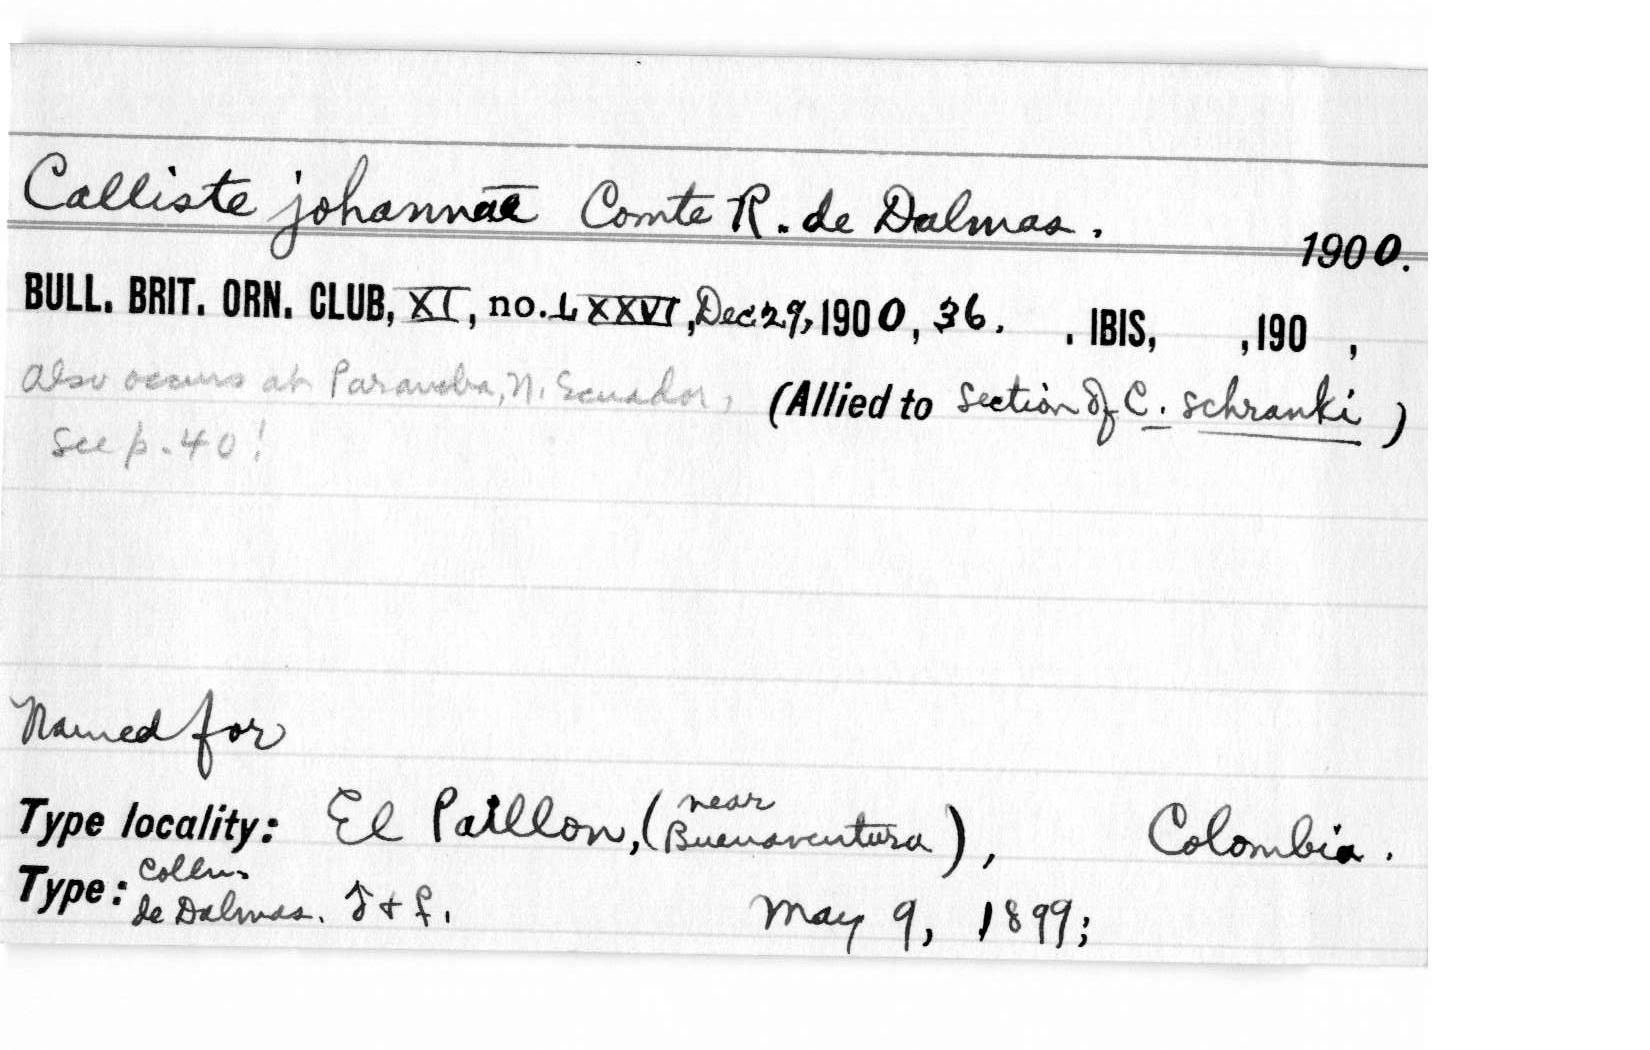 Calliste johannae Comte R. de Dalmas. 1900.
BULL. BRIT. ORN. CLUB, XI, no. LXXVI, Dec. 29, 1900, 36. . IBIS, , 190 ,
also occurs at Paramba, N. Ecuador, (Allied to section of C. schranki)
See p. 40!
Named for
Type locality: El Paillon, (near Buenaventura), Colombia.
Type: Colln. de Dalmas. ♂ + ♀. May 9, 1899;